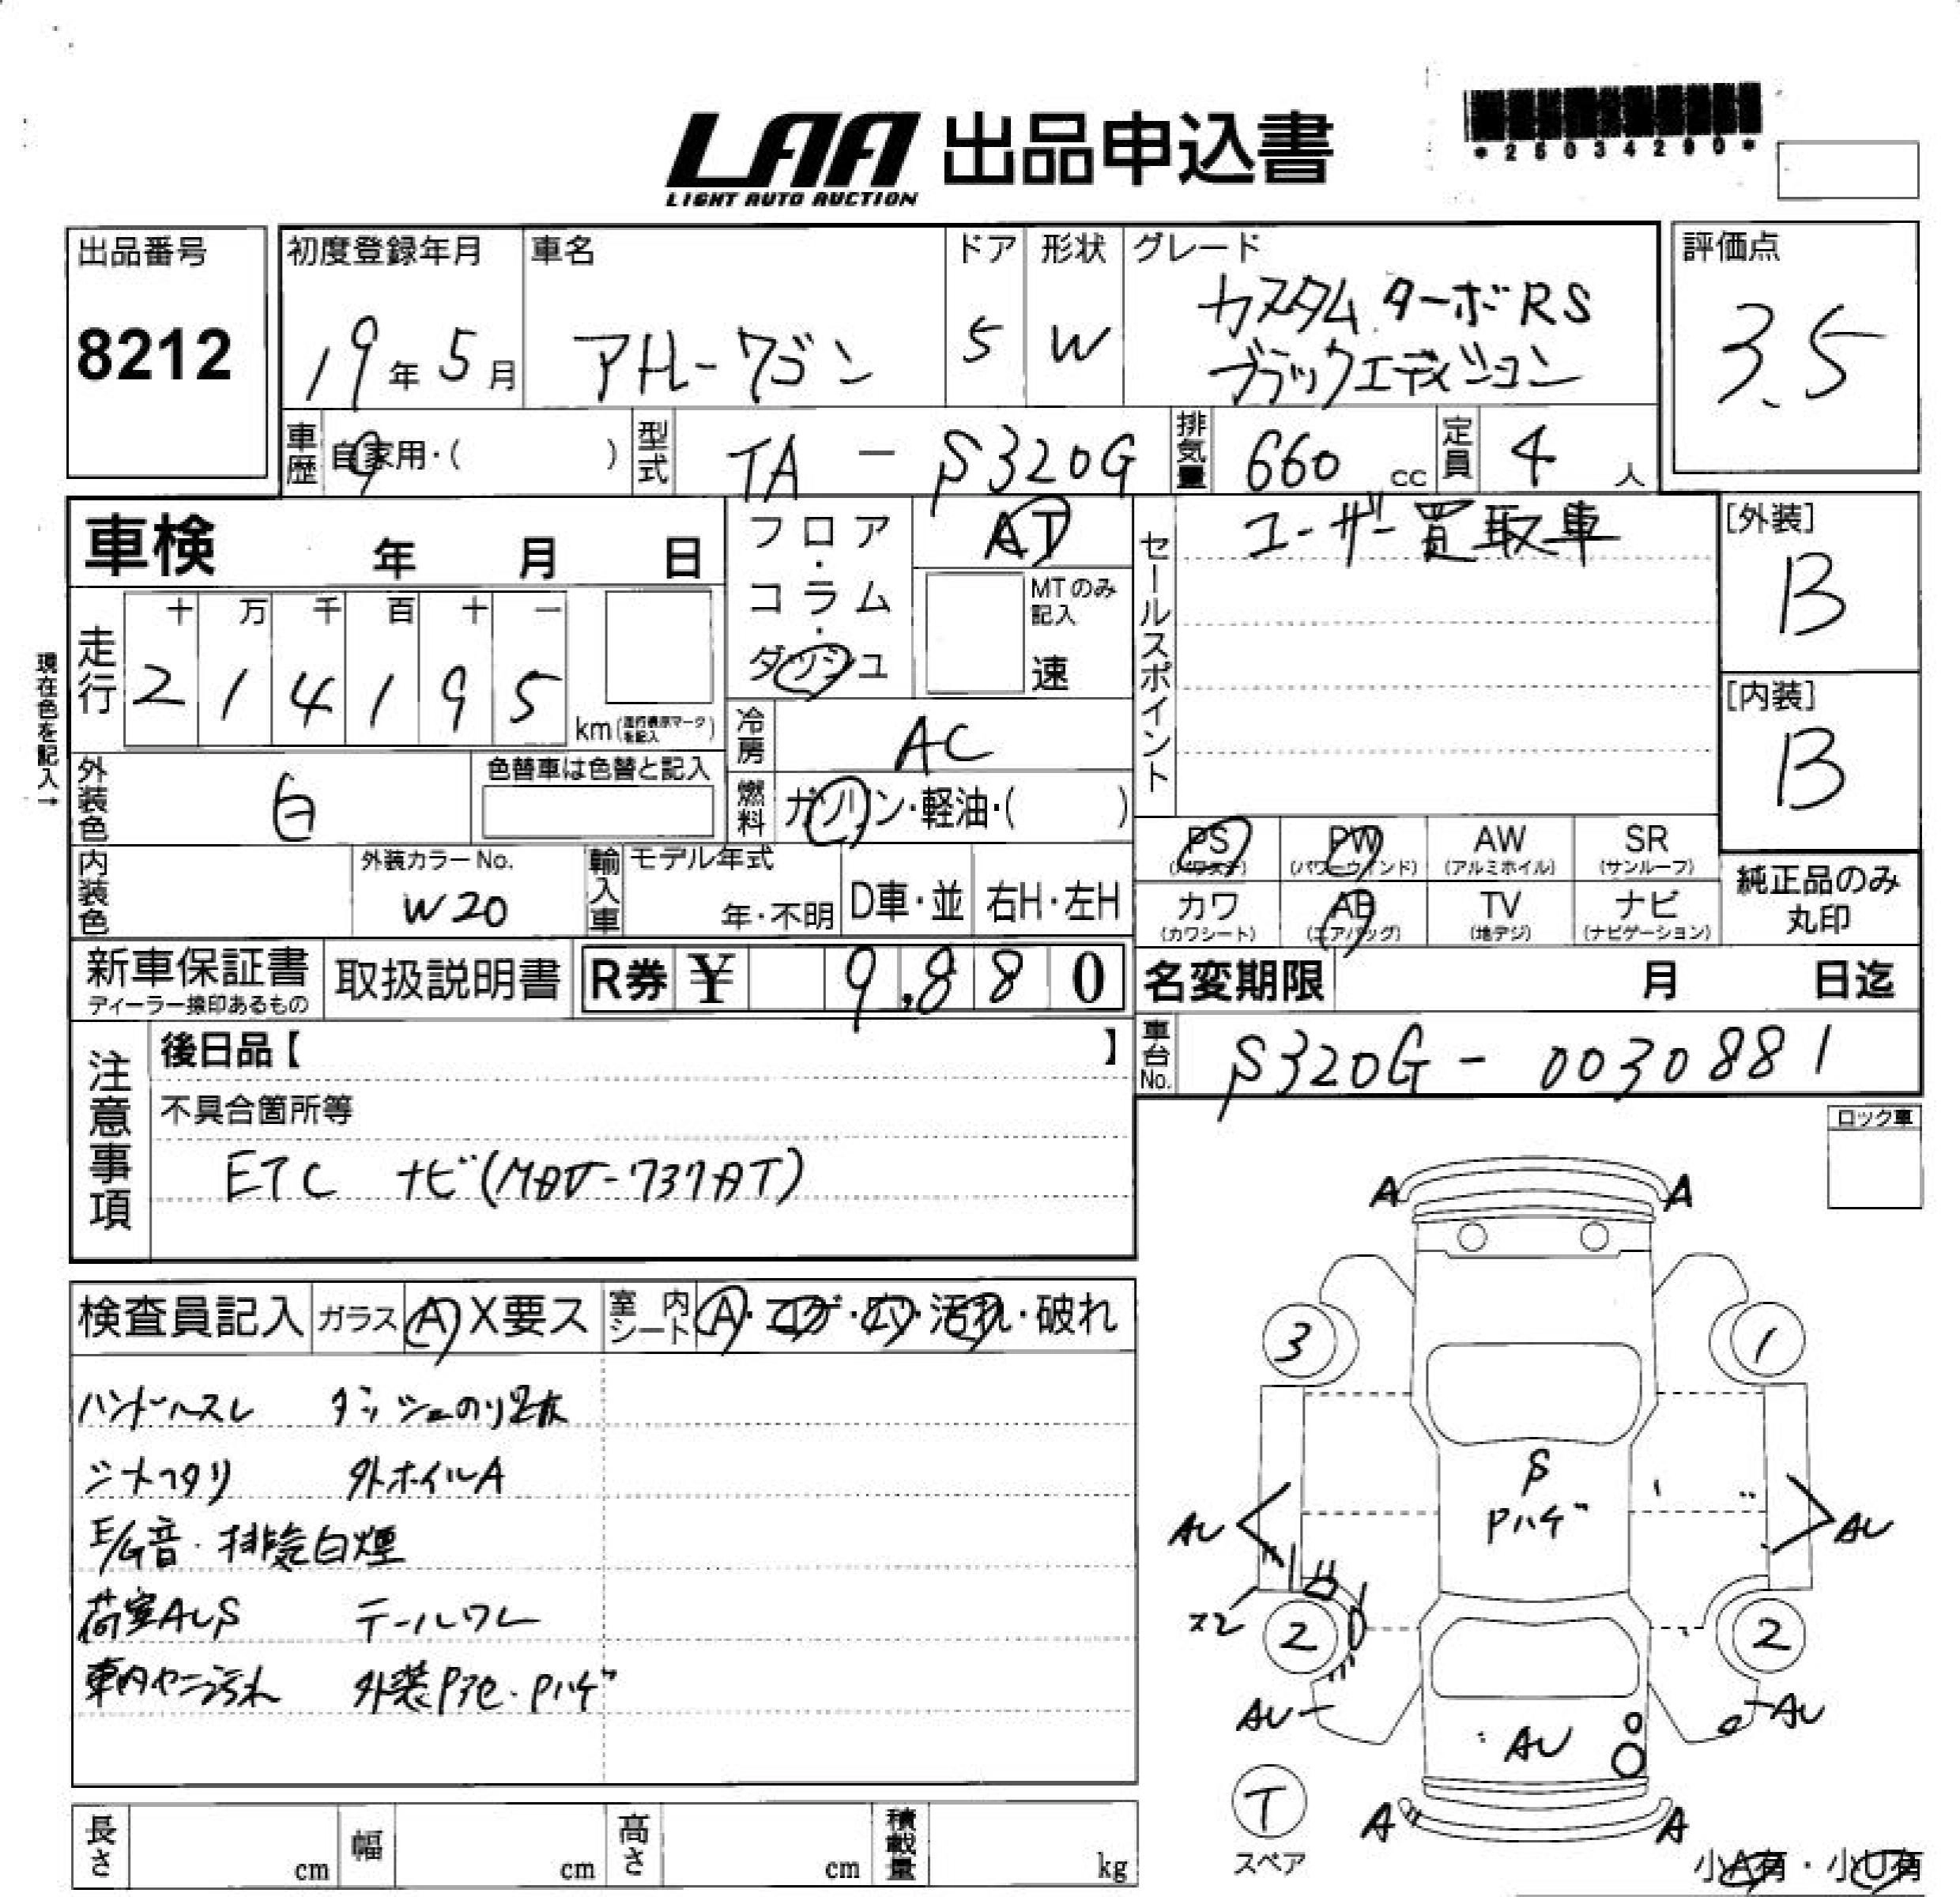 *25034290*
LAA 出品申込書
LIGHT AUTO AUCTION
出品番号
8212
初度登録年月
19年5月
車名
アトレーワゴン
ドア
5
形状
W
グレード
カスタム ターボRS
ブラックエディション
評価点
3.5
車歴 自家用・( )
型式 TA - S320G
排気量 660 cc
定員 4 人
車検 年 月 日
フロア・コラム・ダッシュ
AT
MTのみ記入
速
セールスポイント
ユーザー買取車
[外装]
B
[内装]
B
現在色を記入→
走行
十 万 千 百 十 一
2 1 4 1 9 5
km(走行表示マークを記入)
冷房 AC
外装色 白
色替車は色替と記入
燃料 ガソリン・軽油・( )
PS (パワステ)
PW (パワーウインド)
AW (アルミホイル)
SR (サンルーフ)
カワ (カワシート)
AB (エアバッグ)
TV (地デジ)
ナビ (ナビゲーション)
純正品のみ
丸印
内装色
外装カラーNo.
W20
輸入車
モデル年式
年・不明
D車・並
右H・左H
新車保証書
ディーラー捺印あるもの
取扱説明書
R券 ¥ 9,880
名変期限 月 日迄
車台No. S320G - 0030881
注意事項
後日品【 】
不具合箇所等
ETC ナビ(
ロック車
検査員記入 ガラス A X要ス 室内シート A・コゲ・穴・汚れ・破れ
ハンドルスレ ダッシュのり跡
シートヘタリ 外ホイルA
E/G音・排気白煙
荷室AUS テールワレ
車内ヤニ汚れ 外装Pアセ・Pハゲ
A A
3 1
S
Pハゲ
AU AU
X2
2 2
AU AU
AU
T
スペア
A A
小A有・小U有
長さ cm 幅 cm 高さ cm 積載量 kg